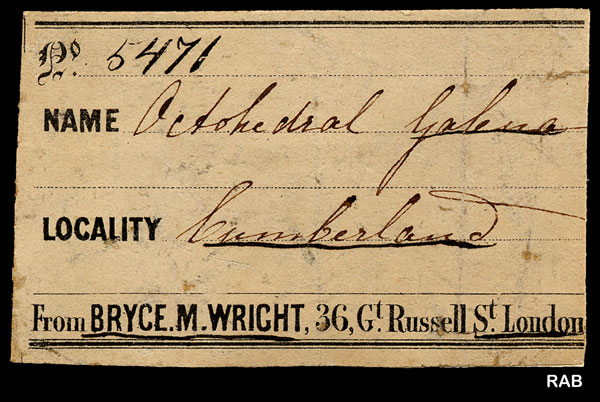 No. 5471
NAME Octohedral Galena
LOCALITY Cumberland
From BRYCE.M.WRIGHT, 36, Gt. Russell St. London
RAB